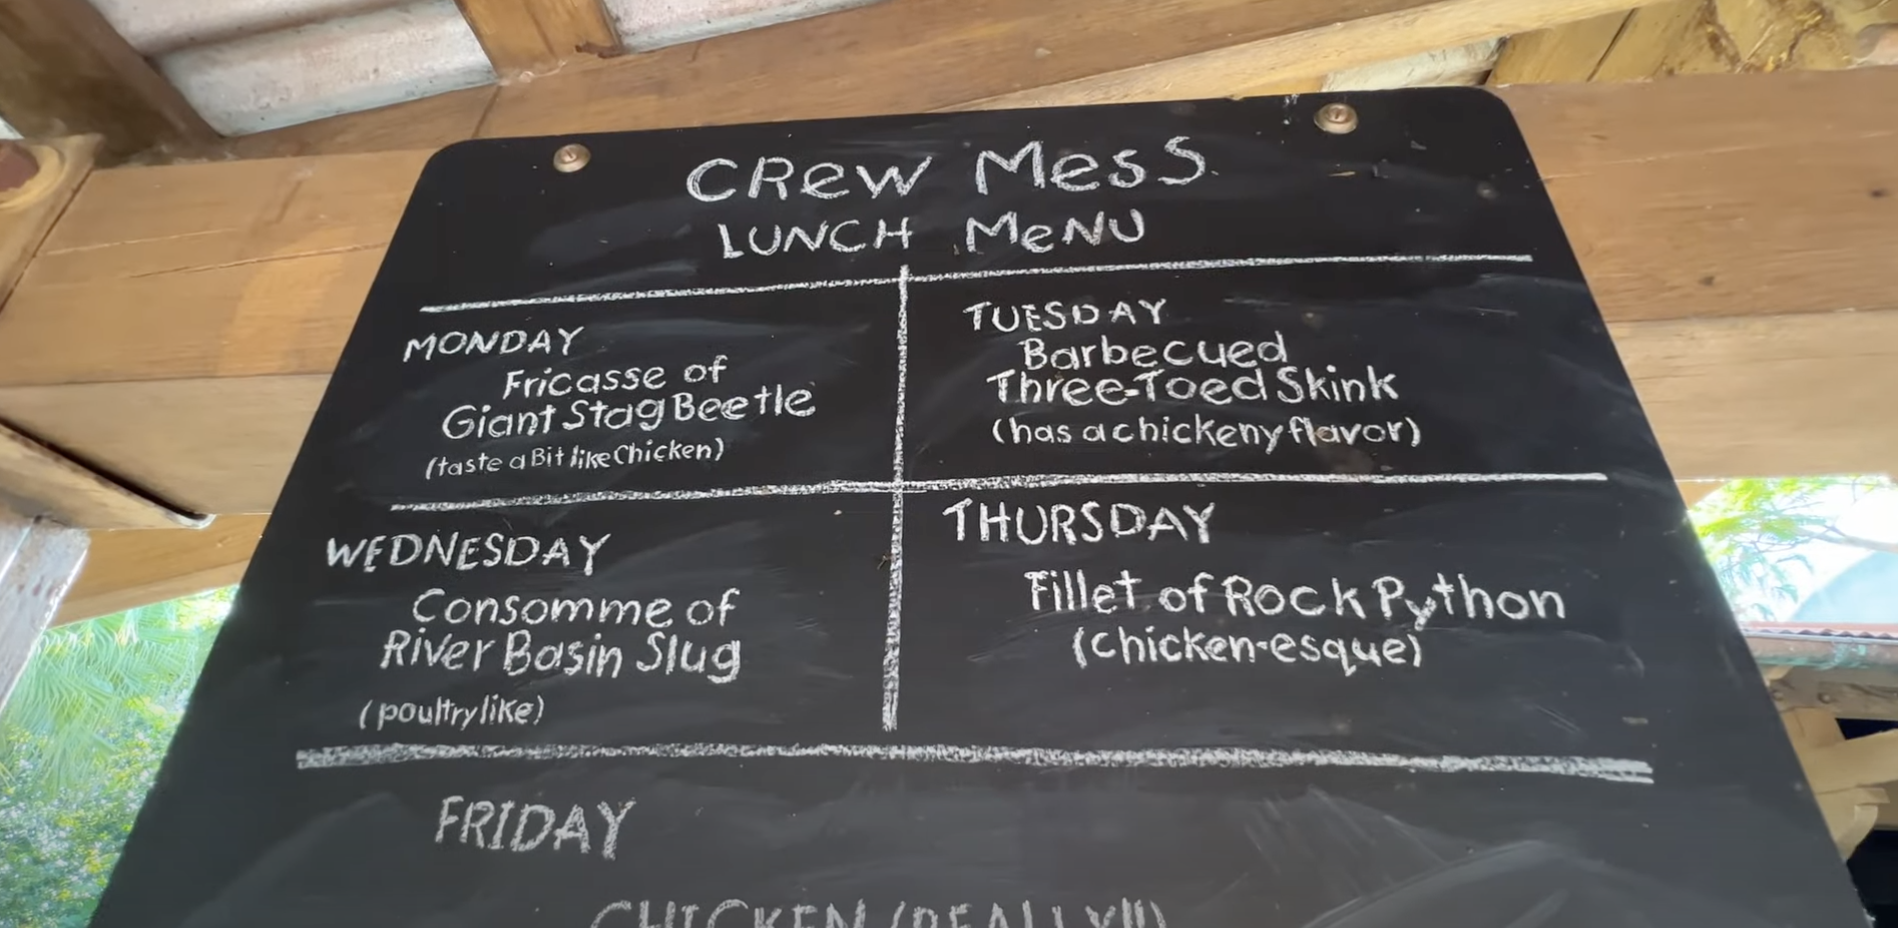 CREW MESS
LUNCH MENU
MONDAY
Fricasse of
Giant Stag Beetle
(taste a Bit like Chicken)
TUESDAY
Barbecued
Three-Toed Skink
(has a chickeny flavor)
WEDNESDAY
Consomme of
River Basin Slug
(poultry like)
THURSDAY
Fillet of Rock Python
(chicken-esque)
FRIDAY
CHICKEN (REALLY!!!)